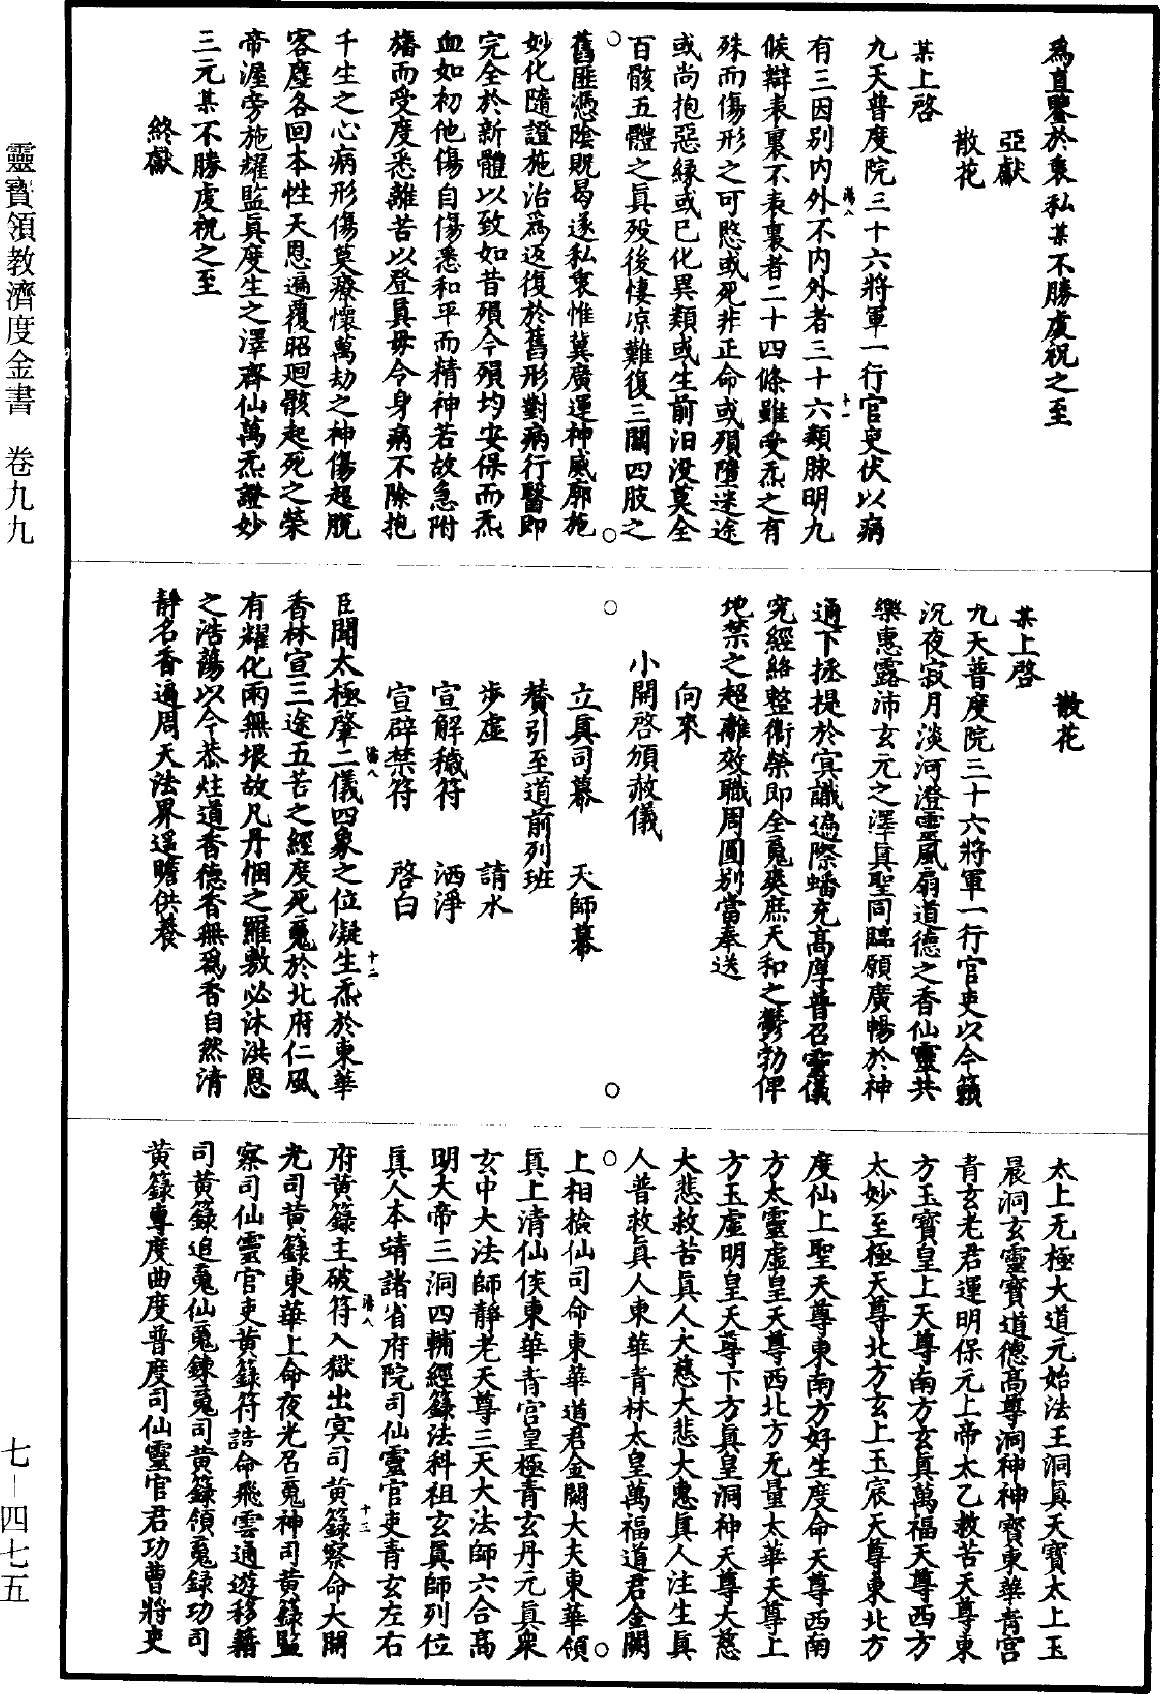 為直鑒於衷私某不勝虔祝之至
亞獻
散花
某上啓
九天普度院三十六將軍一行官吏伏以病
有三因别内外不内外者三十六類脉明九
候辯表裏不表裏者二十四條雖受炁之有
殊而傷形之可愍或死非正命或殞墮迷途
或尚抱惡緣或已化異類或生前汨没莫全
百骸五體之真殁後悽凉難復三關四肢之
舊匪憑陰貺曷遂私衷惟冀廣運神威廓施
妙化隨證施治爲返復於舊形對病行醫即
完全於新體以致如昔殞今殞均安保而炁
血如初他傷自傷悉和平而精神若故急附
旛而受度悉離苦以登真毋令身病不除抱
千生之心病形傷莫療懷萬劫之神傷超脱
客塵各回本性天恩遍覆昭廻骸起死之榮
帝渥旁施耀監真度生之澤齊仙萬炁證妙
三元某不勝虔祝之至
終獻
散花
某上啓
九天普度院三十六將軍一行官吏以今籟
沉夜寂月淡河澄靈風扇道德之香仙靈共
樂惠露沛玄元之澤真聖同臨願廣暢於神
通下拯提於冥識遍際蟠充高厚普召靈儀
究經絡整衛榮即全䰟爽庶天和之欝勃俾
地禁之超離效職周圓别當奉送
向來
小開啓頒赦儀
立真司幕　天師幕
贊引至道前列班
步虚　請水
宣解穢符　洒淨
宣辟禁符　啓白
臣聞太極肇二儀四象之位凝生炁於東華
香林宣三途五苦之經度死䰟於北府仁風
有耀化雨無垠故凡丹悃之羅敷必沐洪恩
之浩蕩以今恭炷道香德香無爲香自然清
靜名香遍周天法界遥瞻供養
太上无極大道元始法王洞真天寶太上玉
晨洞玄靈寶道德高尊洞神神寶東華青宫
青玄老君運明保元上帝太乙救苦天尊東
方玉寶皇上天尊南方玄真萬福天尊西方
太妙至極天尊北方玄上玉宸天尊東北方
度仙上聖天尊東南方好生度命天尊西南
方太靈虚皇天尊西北方无量太華天尊上
方玉虚明皇天尊下方真皇洞神天尊大慈
大悲救苦真人大慈大悲大惠真人注生真
人普救真人東華青林太皇萬福道君金闕
上相撿仙司命東華道君金闕大夫東華領
真上清仙侯東華青宫皇極青玄丹元真衆
玄中大法師靜老天尊三天大法師六合高
明大帝三洞四輔經籙法科祖玄真師列位
真人本靖諸省府院司仙靈官吏青玄左右
府黄籙主破符入獄出冥司黄籙察命大關
光司黄籙東華上命夜光召䰟神司黄籙監
察司仙靈官吏黄籙符誥命飛雲通遊移籍
司黄籙追䰟仙䰟鍊䰟司黄籙領䰟録功司
黄籙專度曲度普度司仙靈官君功曹將吏
靈寶領教濟度金書　卷九九
七—四七五